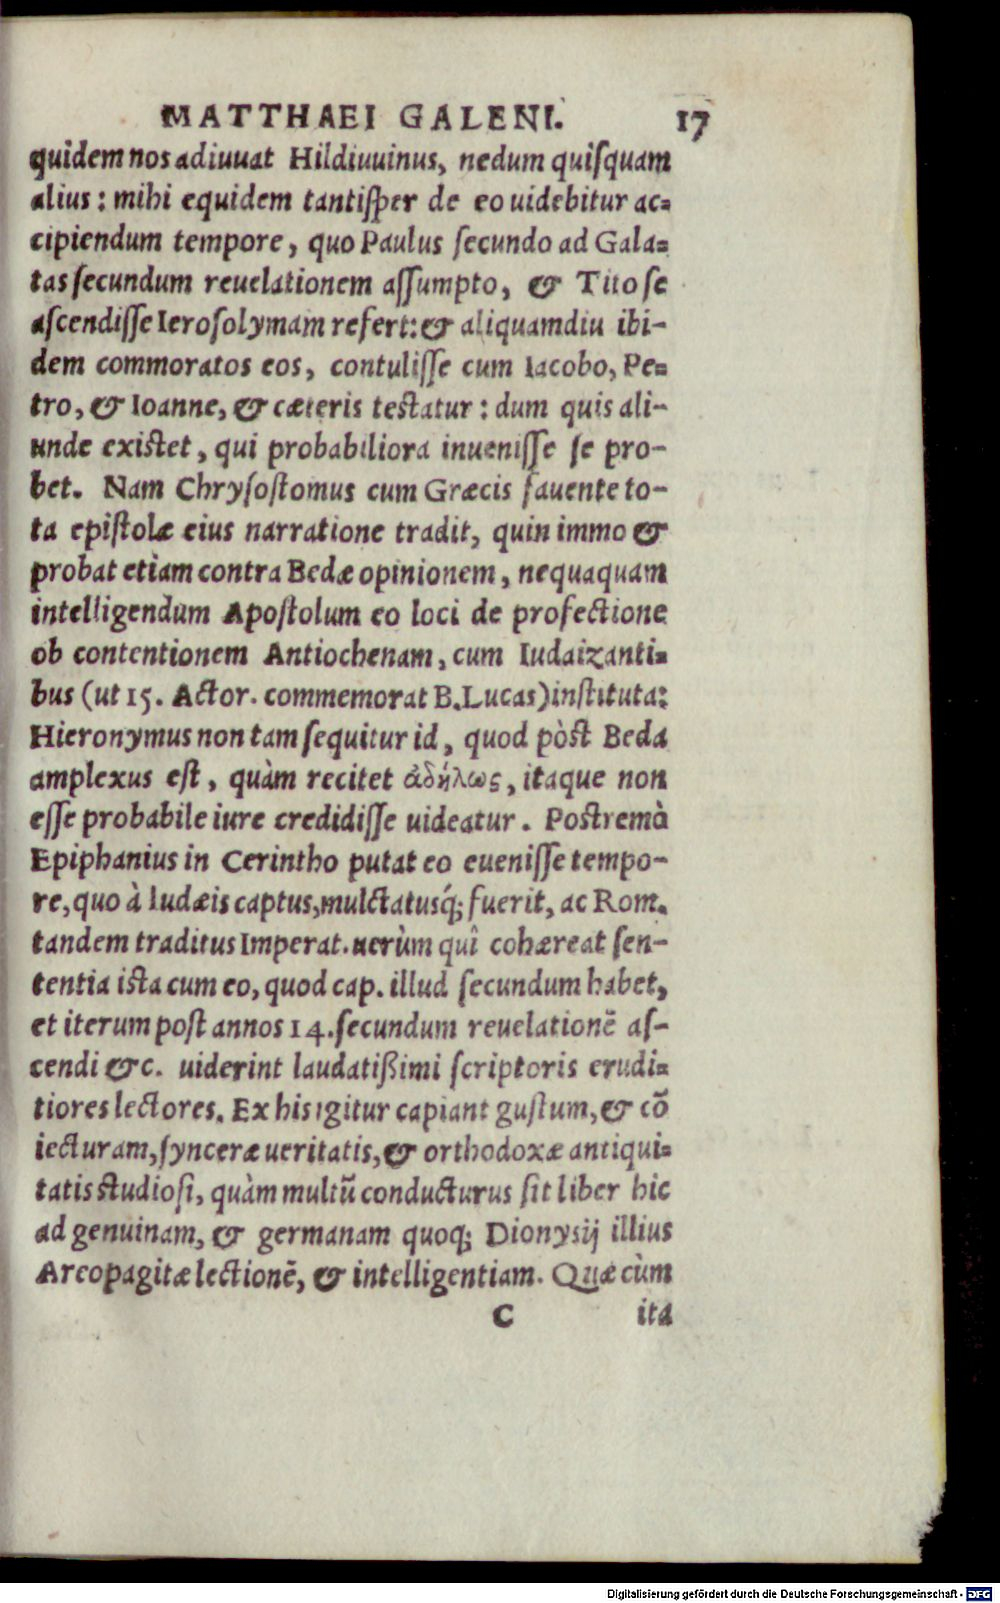 MATTHAEI GALENI. 17
quidem nos adiuuat Hildiuuinus, nedum quiſquam
alius : mihi equidem tantiſper de eo uidebitur ac=
cipiendum tempore, quo Paulus ſecundo ad Gala=
tas ſecundum reuelationem aſſumpto, & Tito ſe
aſcendiſſe Ieroſolymam refert: & aliquamdiu ibi-
dem commoratos eos, contuliſſe cum Iacobo, Pe=
tro, & Ioanne, & cæteris teſtatur : dum quis ali-
unde exiſtet, qui probabiliora inueniſſe ſe pro-
bet. Nam Chryſoſtomus cum Græcis fauente to-
ta epiſtolæ eius narratione tradit, quin immo &
probat etiam contra Bedæ opinionem, nequaquam
intelligendum Apoſtolum eo loci de profectione
ob contentionem Antiochenam, cum Iudaizanti=
bus (ut 15. Actor. commemorat B.Lucas) inſtituta:
Hieronymus non tam ſequitur id, quod pòſt Beda
amplexus eſt, quàm recitet ἀδήλως, itaque non
eſſe probabile iure credidiſſe uideatur. Poſtremò
Epiphanius in Cerintho putat eo eueniſſe tempo-
re, quo à Iudæis captus, mulctatusq́; fuerit, ac Rom.
tandem traditus Imperat. uerùm quî cohæreat ſen-
tentia iſta cum eo, quod cap. illud ſecundum habet,
et iterum poſt annos 14. ſecundum reuelationē aſ-
cendi &c. uiderint laudatißimi ſcriptoris erudi=
tiores lectores. Ex his igitur capiant guſtum, & cō
iecturam, ſynceræ ueritatis, & orthodoxæ antiqui=
tatis ſtudioſi, quàm multū conducturus ſit liber hic
ad genuinam, & germanam quoq; Dionysij illius
Areopagitæ lectionē, & intelligentiam. Quæ cùm
C ita
Digitalisierung gefördert durch die Deutsche Forschungsgemeinschaft - DFG